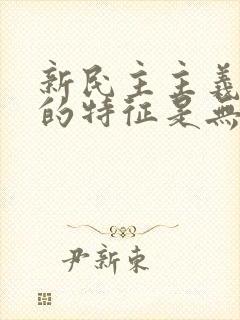 新民主主義
的特征是無
尹新東